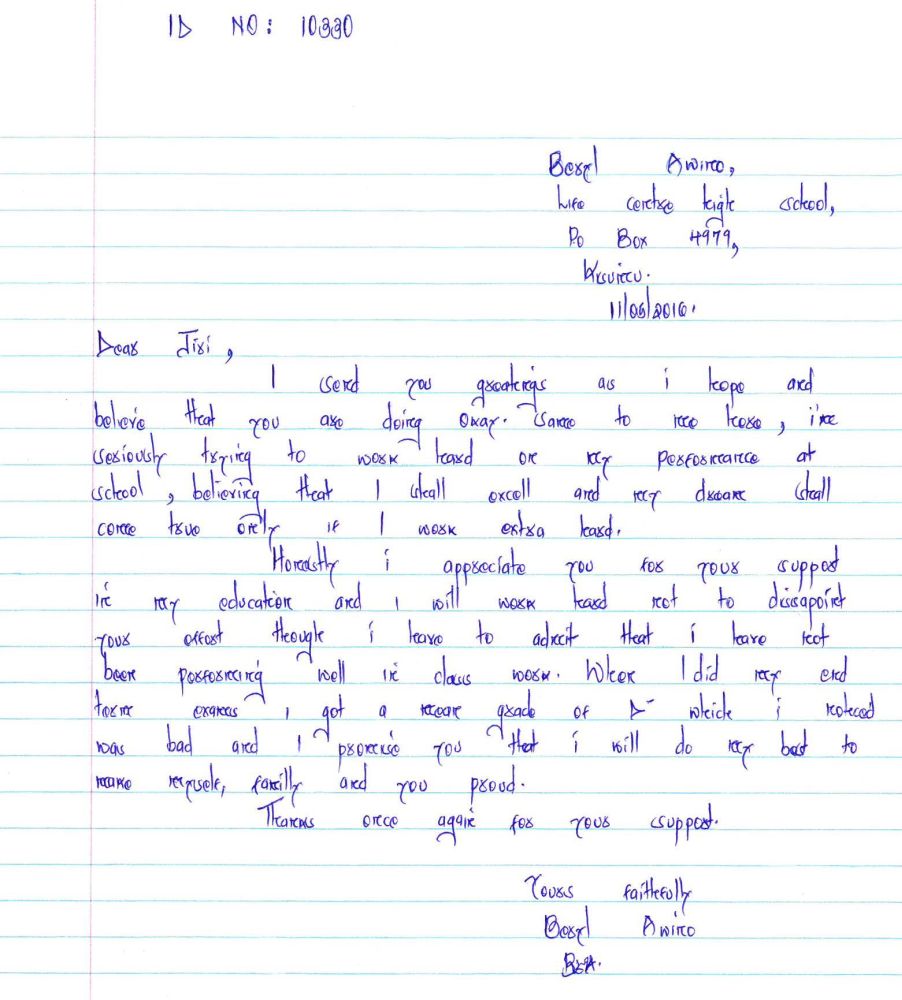 ID NO: 10330
Beryl Awino,
Life centre high school,
Po Box 4979,
Kisumu.
11/06/2016.
Dear Jiri,
I send you greetings as i hope and
believe that you are doing okay. Same to me here, i'm
seriously trying to work hard on my performance at
school, believing that I shall excell and my dream shall
come true only if I work extra hard.
Honestly i appreciate you for your support
in my education and i will work hard not to disapoint
your effort though i have to admit that i have not
been performing well in class work. When I did my end
term exams i got a mean grade of D- which i noticed
was bad and I promise you that i will do my best to
make myself, family and you proud.
Thanks once again for your support.
Yours faithfully
Beryl Awino